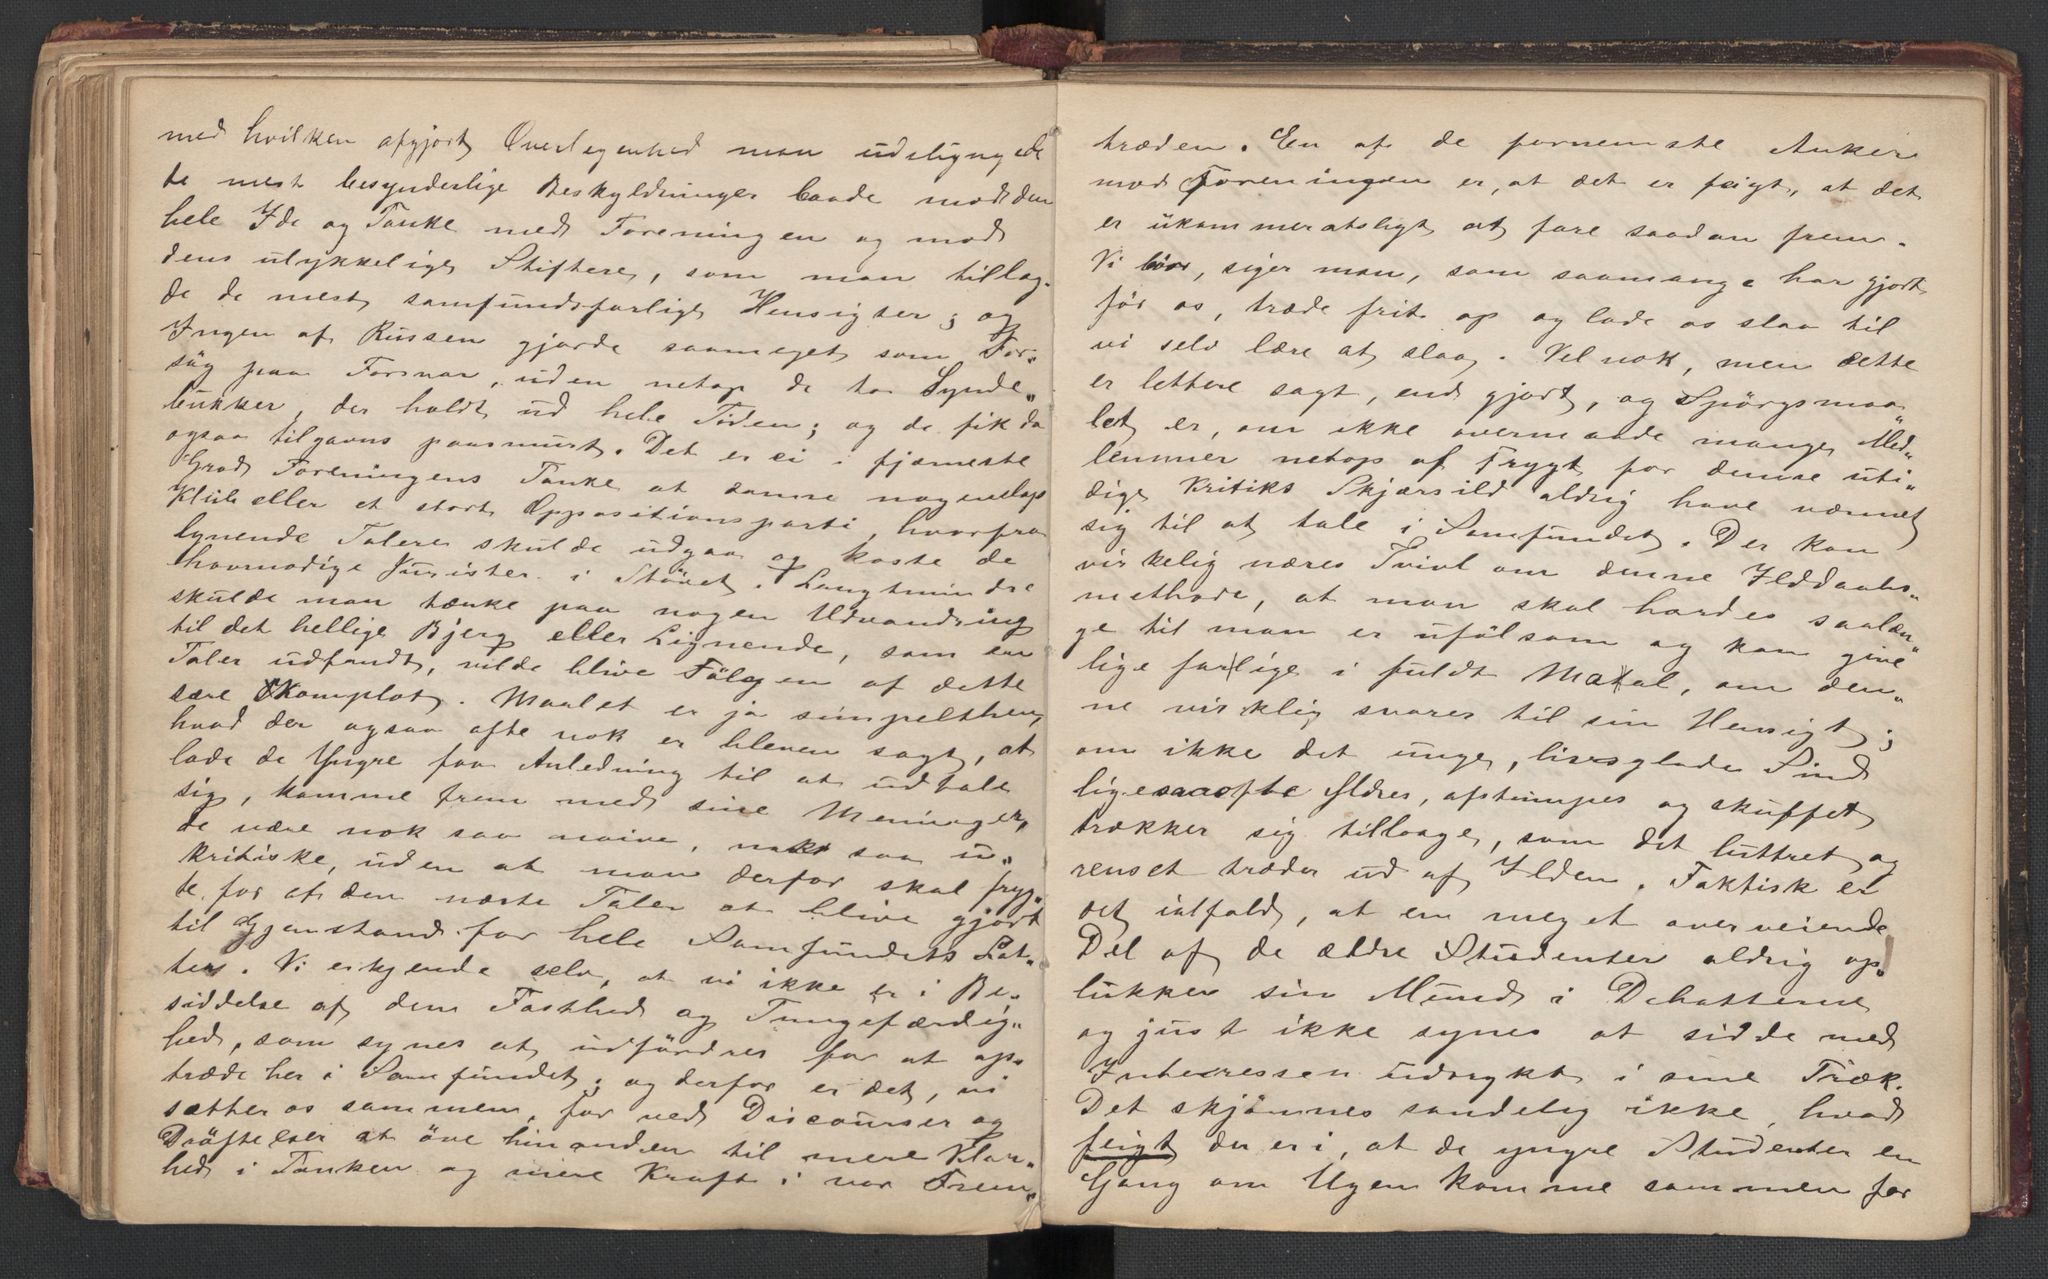 med hvilken afgjort Overlegenhed man udslyngede
de mest besynderlige Beskyldninger baade mod den
hele Ide og Tanke med Foreningen og mod
dens ulykkelige Stiftere, som man tillag-
de de mest samfundsfarlige Hensigter; og
Ingen af Russen gjorde saameget som For„
søg paa Forsvar, uden netop de to Synde„
bukker, der holdt ud hele Tiden; og de fik da
ogsaa tilgavns paasmurt. Det er ei i fjærneste
Grad Foreningens Tanke at danne nogenslags
Klub eller et stort Oppositionsparti, hvorfra
lynende Talere skulde udgaa og kaste de
hovmodige Jurister i Støvet. Langt mindre
skulde man tænke paa nogen Udvandring
til det hellige Bjerg eller Lignende, som en
Taler udfandt, vilde blive Følgen af dette
sære Komplot. Maalet er jo simpelthen,
hvad der ogsaa ofte nok er bleven sagt, at
lade de Yngre faa Anledning til at udtale
sig, komme frem med sine Meninger,
de være nok saa naive, nok saa u„
kritiske, uden at man derfor skal fryg„
te for af den næste Taler at blive gjort
til Gjenstand for hele Samfundets Lat„
ter. Vi erkjende selv, at vi ikke er i Be„
siddelse af den Fasthed og Tungefærdig„
hed, som synes at udfordres for at op„
træde her i Samfundet; og derfor er det, vi
sætter os sammen, for ved Discourser og
Drøftelser at øve hinanden til mere Klar„
hed i Tanken og mere Kraft i vor Frem„
træden. En af de fornemste Anker
mod Foreningen er, at det er feigt, at det
er ukammeratsligt at fare saadan frem.
Vi bør, siger man, som saamange har gjort
før os, træde frit op og lade os slaa til
vi selv lære at slaa. Vel nok, men dette
er lettere sagt, end gjort, og Spørgsmaa„
let er, om ikke overmaade mange Med„
lemmer netop af Frygt for denne uti„
dige Kritiks Skjærsild aldrig have vænnet
sig til at tale i Samfundet. Der kan
virkelig næres Tvivl om denne Ilddaabs„
methode, at man skal hærdes saalæn„
ge til man er ufølsom og kan give
lige farlige i fuldt Maal, om den„
ne virklig svarer til sin Hensigt;
om ikke det unge, livsglade Sind
ligesaaofte ældes, afstumpes og skuffet
trækker sig tilbage, som det luttret og
renset træder ud af Ilden. Faktisk er
det ialfald, at en meget overveiende
Del af de ældre Studenter aldrig op„
lukker sin Mund i Debatterne
og just ikke synes at sidde med
Interessen udtrykt i sine Træk.
Det skjønnes sandelig ikke, hvad
feigt der er i, at de yngre Studenter en
Gang om Ugen komme sammen for